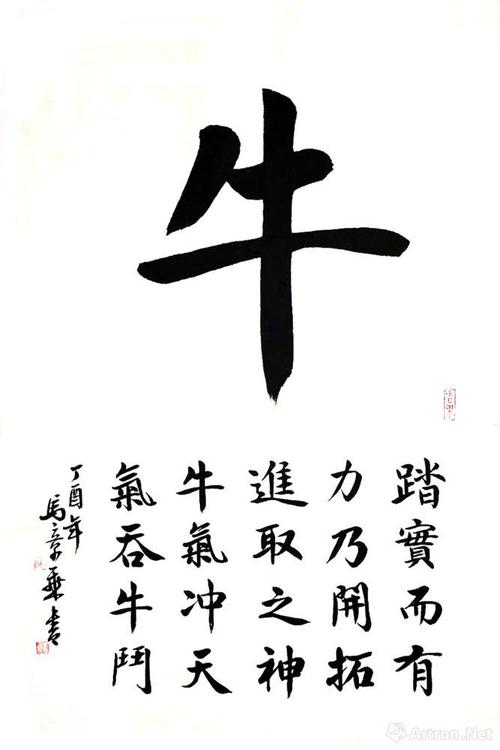 牛
踏實而有
力乃開拓
進取之神
牛氣冲天
氣吞牛鬥
丁酉年
馬章乘書
Artron.Net